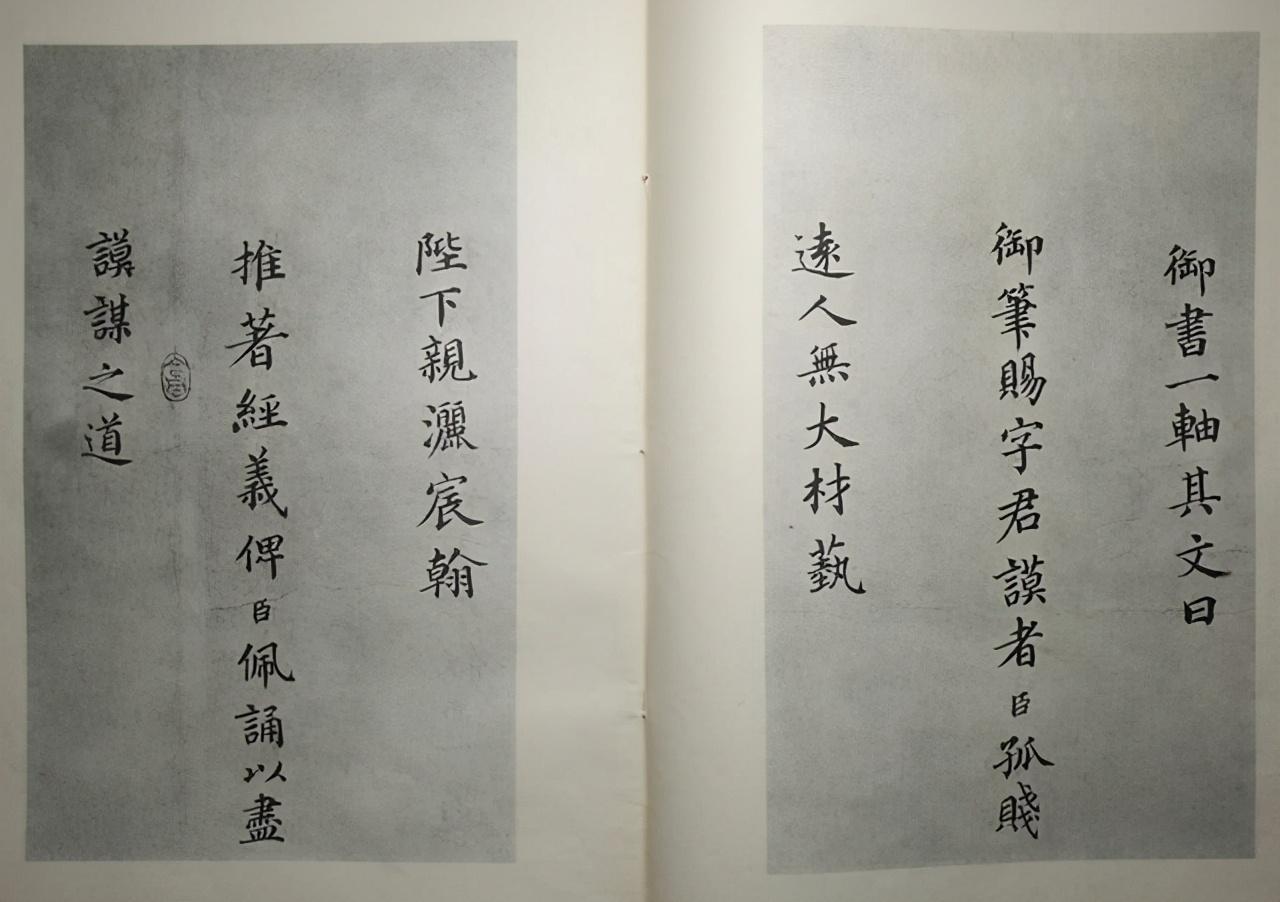 御書一軸其文曰
御筆賜字君謨者臣孤賤
遠人無大材藝
陛下親灑宸翰
推著經義俾臣佩誦以盡
謨謀之道